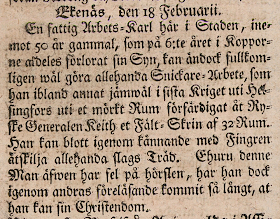 Ekenäs, den 18 Februarii.
En fattig Arbets-Karl här i Staden, ine-
mot 50 år gammal, som på 6:te året i Koppor-
ne aldeles förlorat sin Syn, kan ändock fullkom-
ligen wäl göra allehanda Snickare-Arbete, som
han ibland annat jämwäl i sista Kriget uti Hel-
singfors uti et mörkt Rum förfärdigat åt Ry-
ske Generalen Keith et Fält-Skrin af 32 Rum.
Han kan blott igenom kännande med Fingren
åtskilja allehanda slags Träd. Ehuru denne
Man äfwen har fel på hörslen, har han dock
igenom andras föreläsande kommit så långt, at
han kan sin Christendom.